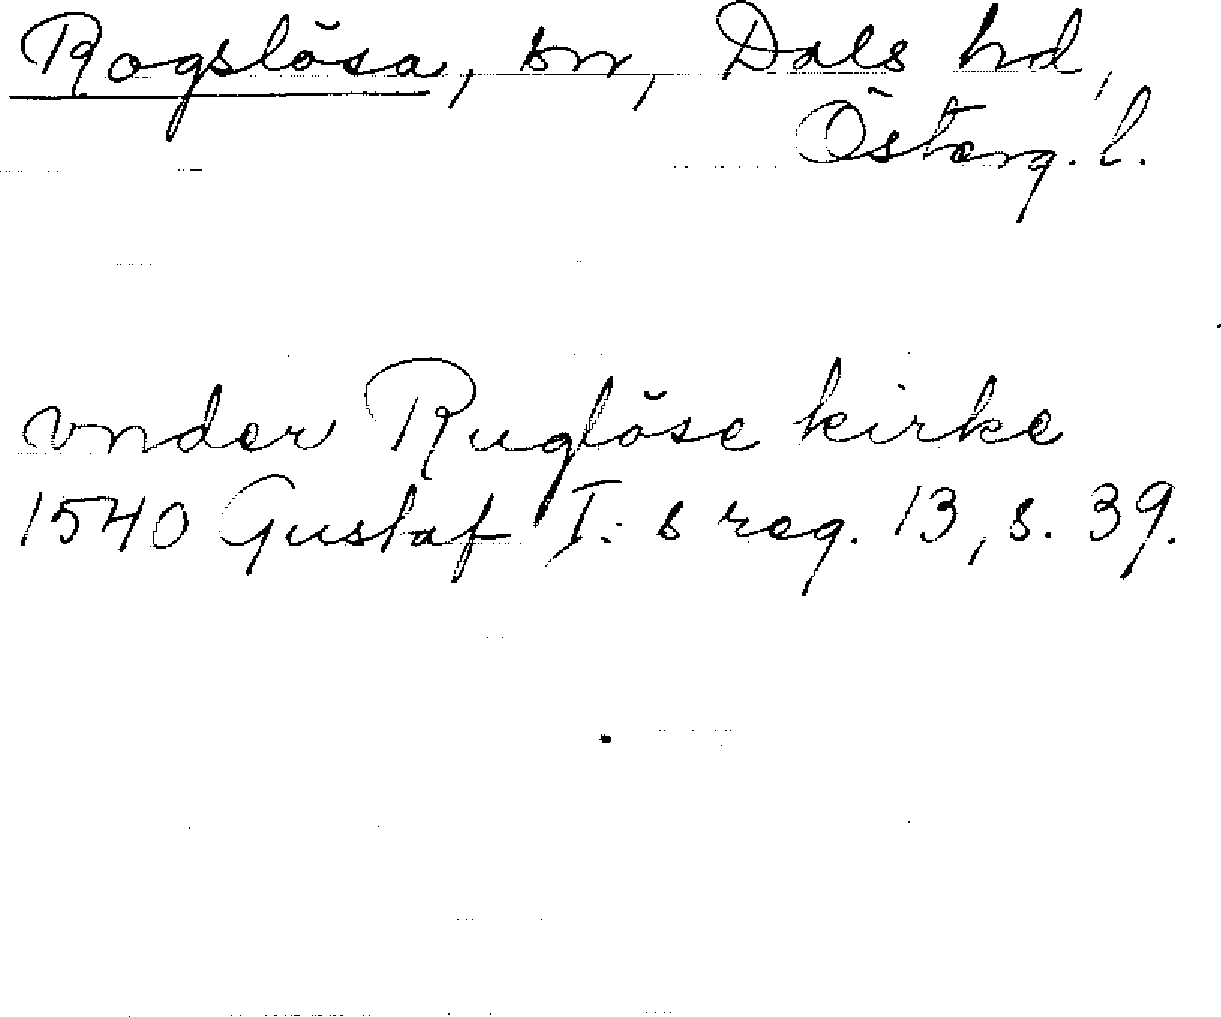 Rogslösa, sn, Dals hd,
Österg. l.
vnder Ruglöse kirke
1540 Gustaf I:s reg. 13, s. 39.